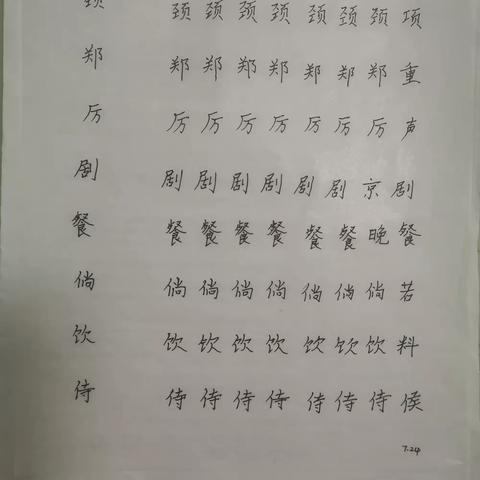 颈 颈 颈 颈 颈 颈 颈 颈 项
郑 郑 郑 郑 郑 郑 郑 郑 重
厉 厉 厉 厉 厉 厉 厉 厉 声
剧 剧 剧 剧 剧 剧 剧 京 剧
餐 餐 餐 餐 餐 餐 餐 晚 餐
倘 倘 倘 倘 倘 倘 倘 倘 若
饮 饮 饮 饮 饮 饮 饮 饮 料
侍 侍 侍 侍 侍 侍 侍 侍 候
7.24